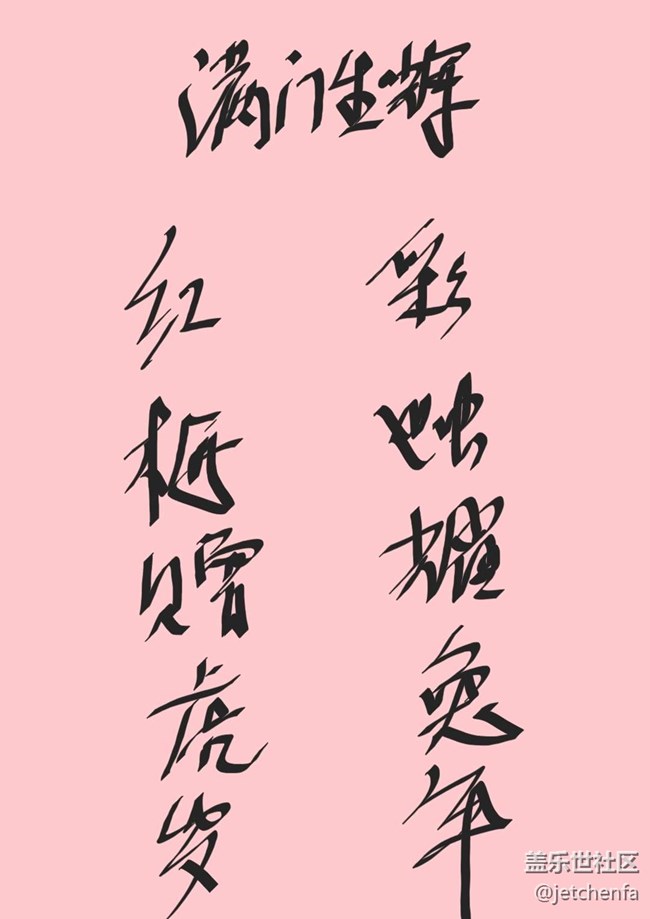 满门生辉
红梅赠虎岁
彩烛耀兔年
盖乐世社区
@jetchenfa